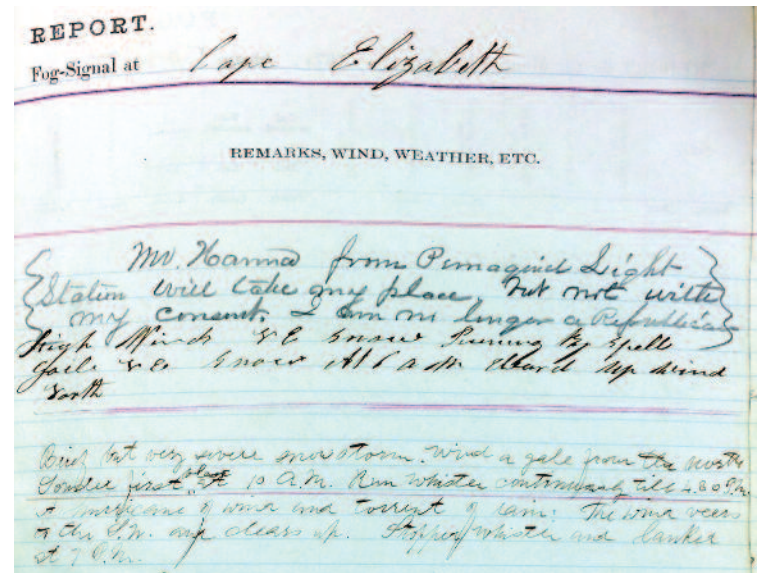 REPORT.
Fog-Signal at Cape Elizabeth
REMARKS, WIND, WEATHER, ETC.
Mr. Hanna from Pemaquid Light
Station will take my place, but not with
my consent. I am no longer a Republican
High Winds N E Snow Running By Spell
Gail N E Snow At 6 a m Wind
North
Brief but very severe snow storm. Wind a gale from the north
first blast at 10 A.M. Run whistle continuously till 4.30 P.M.
A hurricane of wind and torrent of rain. The wind veers
to the S.W. and clears up. Stopped whistle and banked
at 7 P.M.